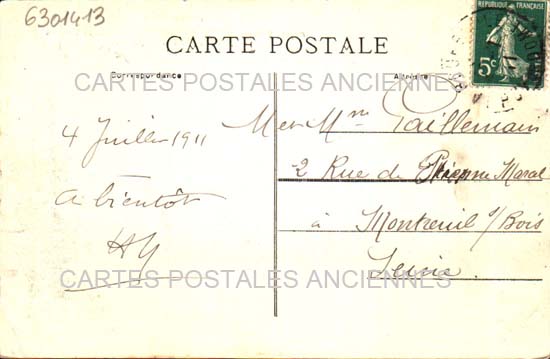 6301413
CARTE POSTALE
RÉPUBLIQUE FRANÇAISE
5c
CARTES POSTALES ANCIENNES
Correspondance
Adresse
4 Juillet 1911
A bientôt
HY
M et Mme Paillemain
2 Rue de
à Montreuil s/Bois
Seine
CARTES POSTALES ANCIENNES